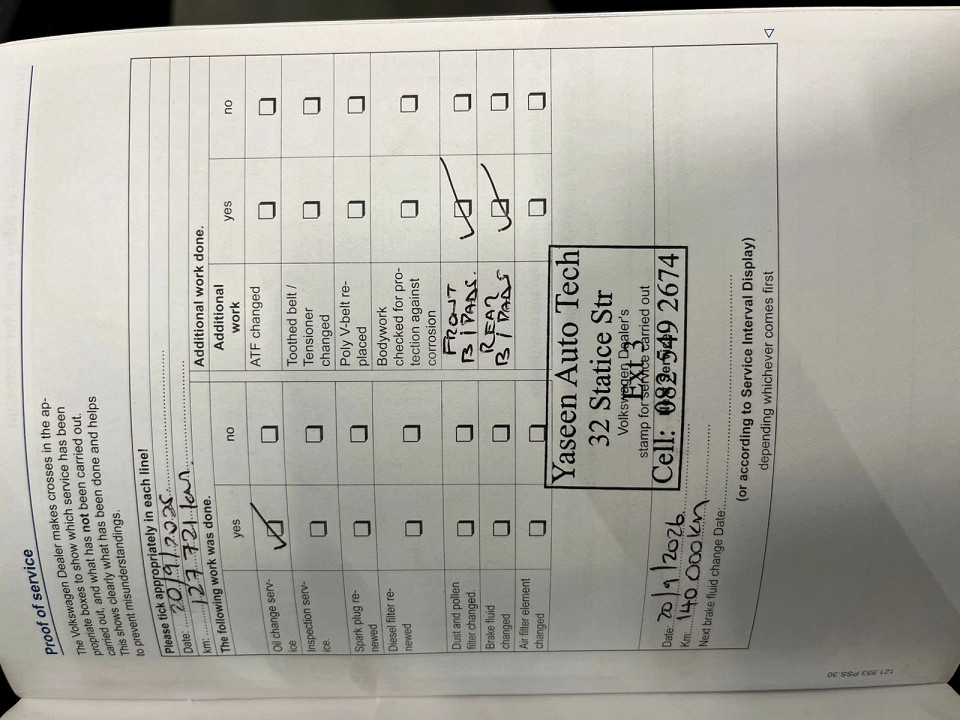 Proof of service
The Volkswagen Dealer makes crosses in the ap-
propriate boxes to show which service has been
carried out, and what has not been carried out.
This shows clearly what has been done and helps
to prevent misunderstandings.
Please tick appropriately in each line!
Date: 20/9/2025
km: 127.721 km
The following work was done.
yes
no
Oil change serv-
ice
Inspection serv-
ice.
Spark plug re-
newed
Diesel filter re-
newed
Dust and pollen
filter changed.
Brake fluid
changed
Air filter element
changed
Additional work done.
Additional
work
yes
no
ATF changed
Toothed belt /
Tensioner
changed
Poly V-belt re-
placed
Bodywork
checked for pro-
tection against
corrosion
FRONT
B/PADS.
REAR
B/PADS
Yaseen Auto Tech
32 Statice Str
Volkswagen Dealer's
Ext 3
stamp for service carried out
Cell: 082 549 2674
Date: 20/9/2026
Km: 140.000km
Next brake fluid change Date:
(or according to Service Interval Display)
depending whichever comes first
121.553.PSS.30